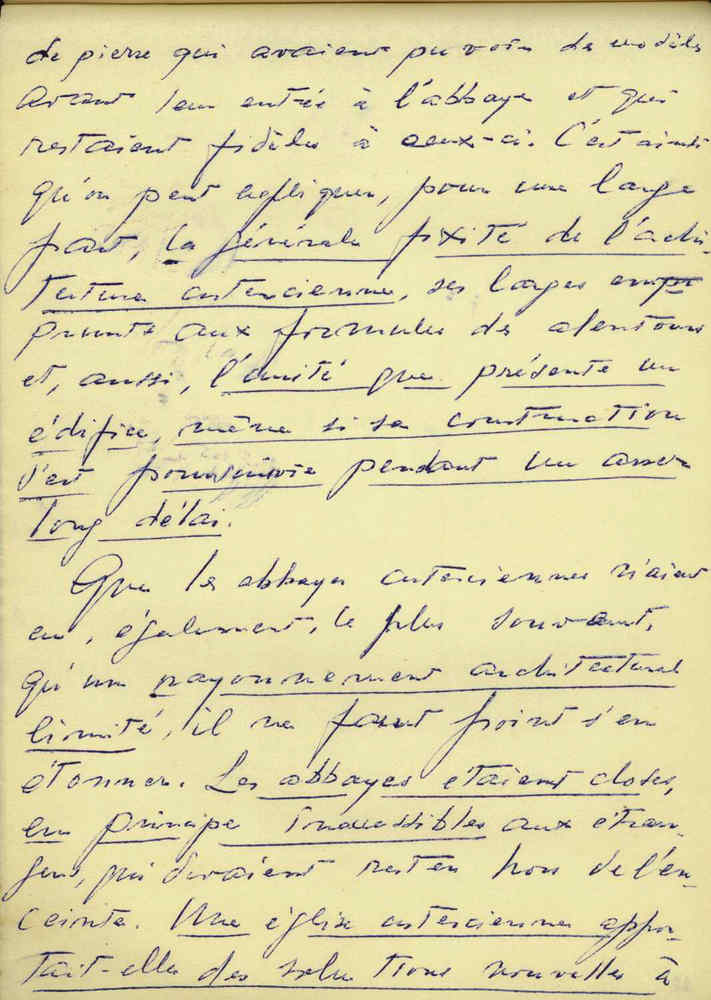 de pierre qui avaient pu voir de modèles
avant leur entrée à l'abbaye et qui
restaient fidèles à ceux-ci. C'est ainsi
qu'on peut expliquer, pour une large
part, la générale fixité de l'archi-
tecture cistercienne, ses larges em
prunts aux formules des alentours
et, aussi, l'unité que présente un
édifice, même si sa construction
s'est poursuivie pendant un assez
long délai.
Que les abbayes cisterciennes n'aient
eu, également, le plus souvent,
qu'un rayonnement architectural
limité, il ne faut point s'en
étonner. Les abbayes étaient closes,
en principe inaccessibles aux étran-
gers, qui devaient rester hors de l'en-
ceinte. Une église cistercienne appor-
tait-elle des solutions nouvelles à